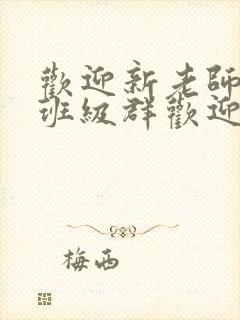 歡迎新老師
班級群歡迎
梅西